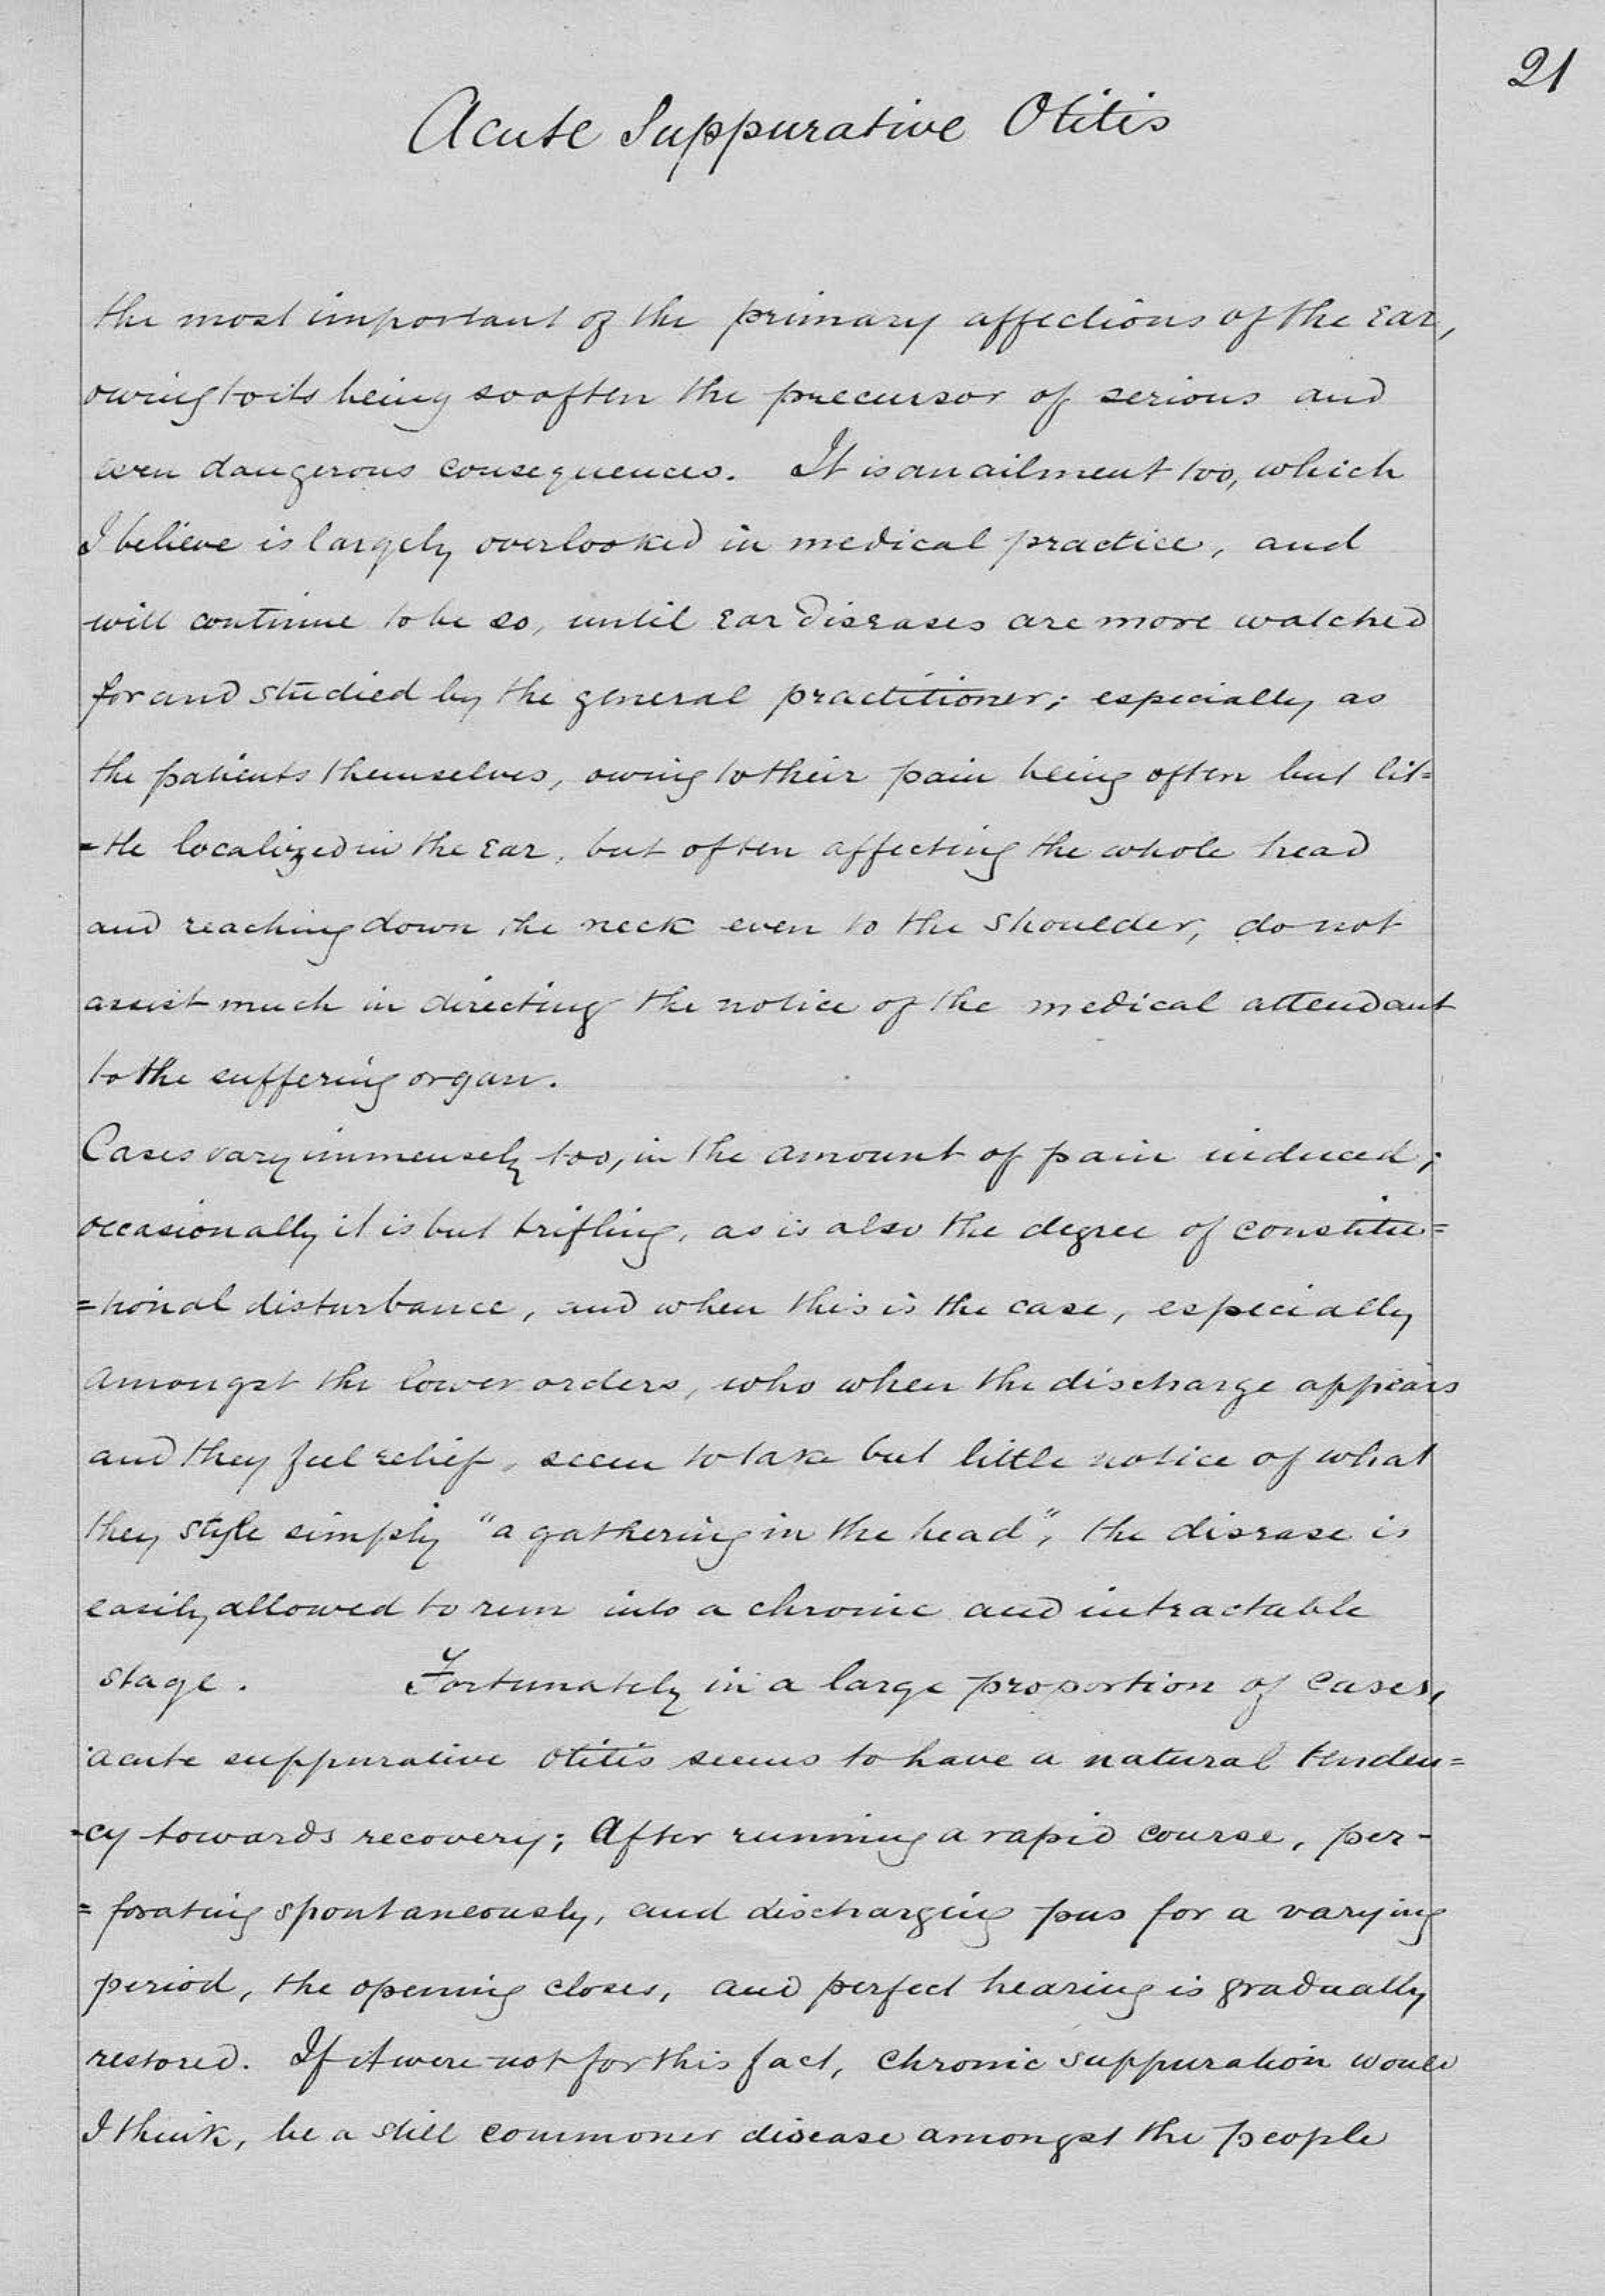 21
Acute Suppurative Otitis
the most important of the primary affections of the Ear,
owing to its being so often the precursor of serious and
even dangerous consequences. It is an ailment too, which
I believe is largely overlooked in medical practice, and
will continue to be so, until Ear Diseases are more watched
for and studied by the general practitioner; especially as
the patients themselves, owing to their pain being often but lit=
=tle localized in the Ear, but often affecting the whole head
and reaching down the neck even to the shoulder, do not
assist much in directing the notice of the medical attendant
to the suffering organ.
Cases vary immensely too, in the amount of pain induced;
occasionally it is but trifling, as is also the degree of constitu=
=tional disturbance, and when this is the case, especially
amongst the lower orders, who when the discharge appears
and they feel relief, seem to take but little notice of what
they style simply "a gathering in the head", the disease is
easily allowed to run into a chronic and intractable
stage. Fortunately in a large proportion of cases,
acute suppurative Otitis seems to have a natural tenden=
=cy towards recovery; After running a rapid course, per-
=forating spontaneously, and discharging pus for a varying
period, the opening closes, and perfect hearing is gradually
restored. If it were not for this fact, chronic suppuration would
I think, be a still commoner disease amongst the people